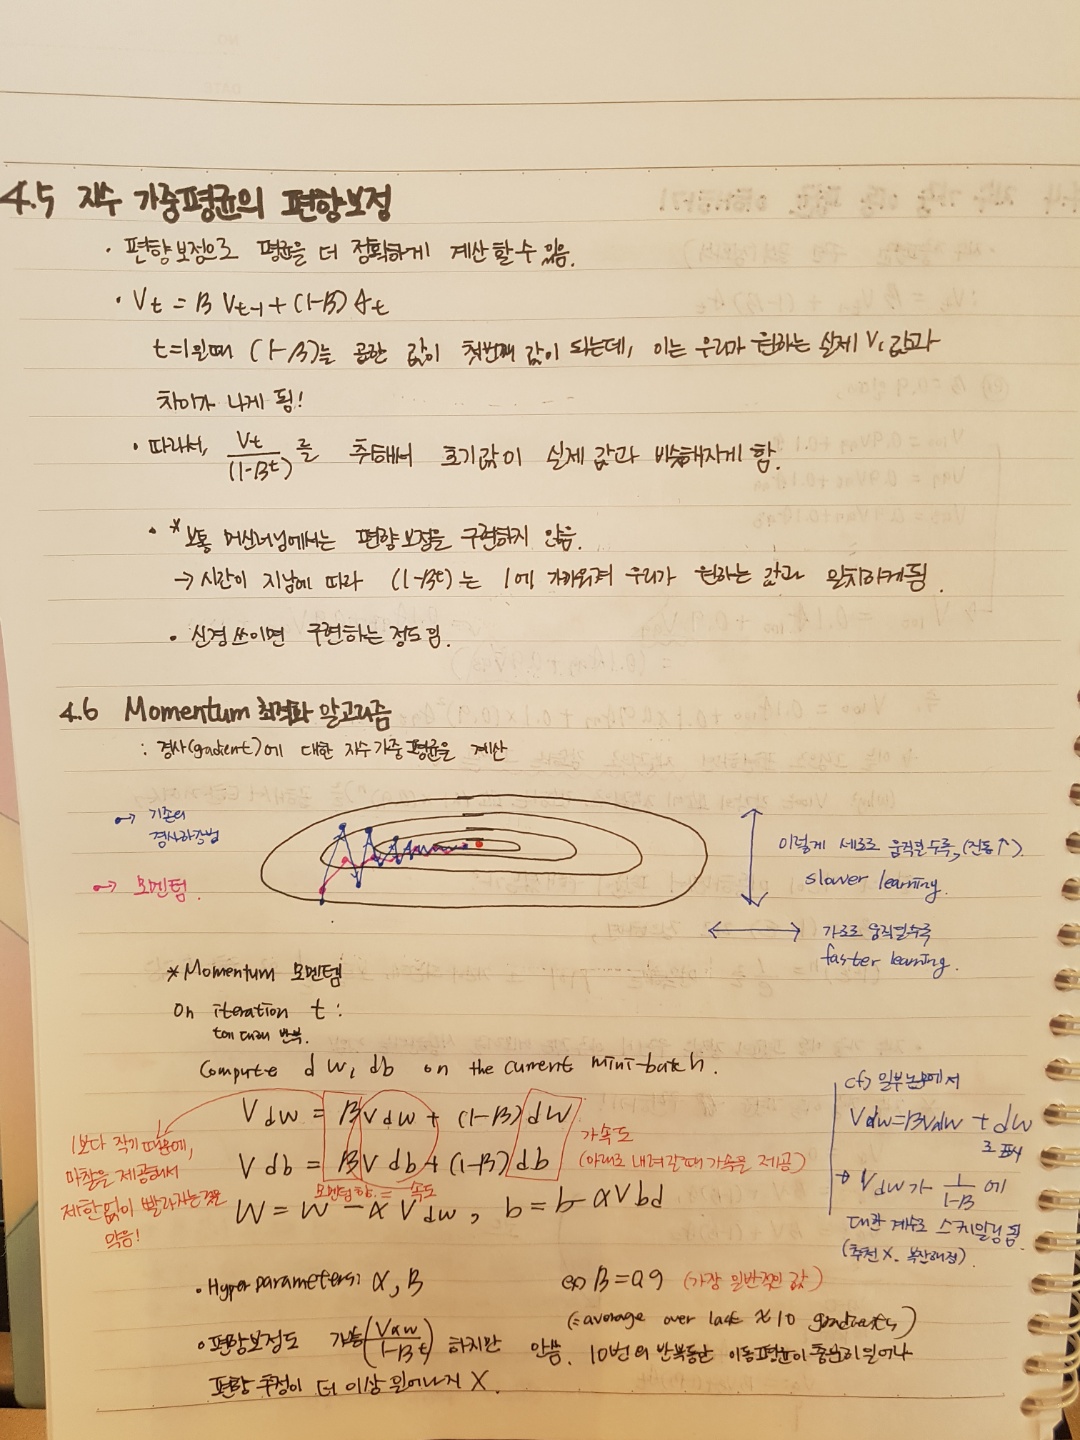 4.5 지수 가중평균의 편향보정
· 편향보정으로 평균을 더 정확하게 계산할 수 있음.
· Vt = β Vt-1 + (1-β) θt
t=1일때 (1-β)를 곱한 값이 첫번째 값이 되는데, 이는 우리가 원하는 실제 V1 값과
차이가 나게 됨!
· 따라서, Vt/(1-βt) 를 취해서 초기값이 실제 값과 비슷해지게 함.
· * 보통 머신러닝에서는 편향보정을 구현하지 않음.
→ 시간이 지남에 따라 (1-βt)는 1에 가까워져 우리가 원하는 값과 일치하게됨.
· 신경 쓰이면 구현하는 정도임.
4.6 Momentum 최적화 알고리즘
: 경사(gradient)에 대한 지수가중평균을 계산
→ 기존의
경사하강법
→ 모멘텀
이렇게 세로로 움직일수록, (진동↑)
slower learning.
가로로 움직일수록
faster learning.
* Momentum 모멘템
On iteration t:
t에 대해 반복.
Compute dw, db on the current mini-batch.
Vdw = βVdw + (1-β)dW
Vdb = βVdb + (1-β)db
W = W - αVdw, b = b - αVbd
1보다 작기 때문에,
마찰을 제공해서
제한없이 빨라지는것을
막음!
모멘텀항 = 속도
가속도
(아래로 내려갈때 가속을 제공)
cf) 일부논문에서
Vdw=βVdW + dW
로 표시
→ Vdw가 1/(1-β)에
대한 계수로 스케일링 됨.
(추천X. 복잡해짐)
· Hyperparameters: α, β
ex) β=0.9 (가장 일반적인 값)
(=average over last ≈10 gradients)
· 편향보정도 가능(Vdw/1-βt) 하지만 안씀. 10번의 반복동안 이동평균이 충분히 일어나
편향 추정이 더 이상 일어나지 X.